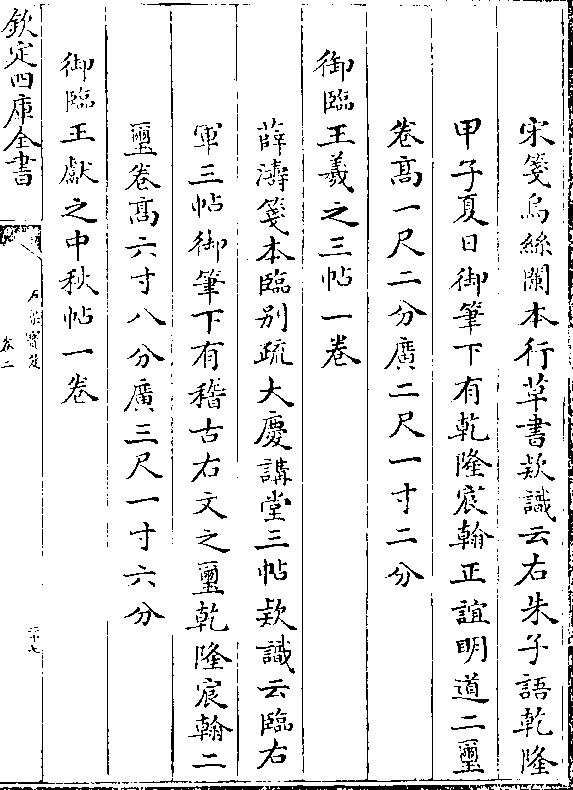 宋箋烏絲闌本行草書欵識云右朱子語乾隆
甲子夏日御筆下有乾隆宸翰正誼明道二璽
卷髙一尺二分廣二尺一寸二分
御臨王羲之三帖一卷
薛濤箋本臨别疏大慶講堂三帖欵識云臨右
軍三帖御筆下有稽古右文之璽乾隆宸翰二
璽卷髙六寸八分廣三尺一寸六分
御臨王獻之中秋帖一卷
欽定四庫全書
石渠寳笈
卷二
二十七